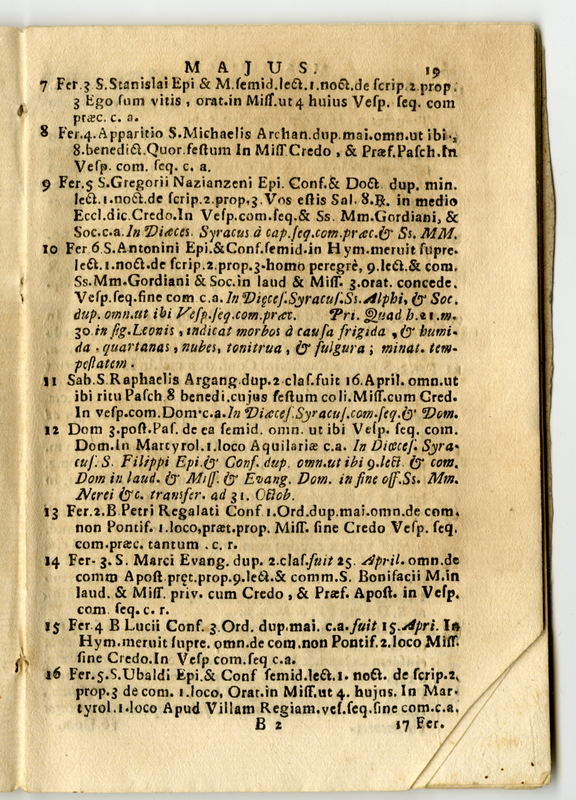 MAJUS. 19
7 Fer.3 S.Stanislai Epi & M.semid.lect.1.noct.de scrip.2.prop.
3 Ego sum vitis, orat.in Miss.ut 4 huius Vesp. seq. com
præc. c. a.
8 Fer.4.Apparitio S.Michaelis Archan.dup.mai.omn.ut ibi.,
8.benedict.Quor.festum In Miss Credo, & Præf.Pasch.In
Vesp. com. seq. c. a.
9 Fer.5 S.Gregorii Nazianzeni Epi. Conf.& Doct. dup. min.
lect.1.noct.de scrip.2.prop.3.Vos estis Sal.8.℞. in medio
Eccl.dic.Credo.In Vesp.com.seq.& Ss. Mm.Gordiani, &
Soc.c.a.In Diæces. Syracus à cap.seq.com.præc.& Ss. MM.
10 Fer 6.S.Antonini Epi.&Conf.semid.in Hym.meruit supre.
lect.1.noct.de scrip.2.prop.3.homo peregrè, 9.lect.& com.
Ss.Mm.Gordiani & Soc.in laud & Miss. 3.orat. concede.
Vesp.seq.sine com c.a. In Dięces.Syracus.Ss.Alphi, & Soc.
dup. omn.ut ibi Vesp.seq.com.præc. Pri. Quad h.21.m.
30.in sig.Leonis, indicat morbos à causa frigida, & humi-
da. quartanas, nubes, tonitrua, & fulgura; minat. tem-
pestatem.
11 Sab.S.Raphaelis Argang.dup.2 clas.fuit 16.April. omn.ut
ibi ritu Pasch.8 benedi.cujus festum coli.Miss.cum Cred.
In vesp.com.Dom.c.a.In Diæces.Syracus.com.seq.& Dom.
12 Dom 3.post.Pas. de ea semid. omn. ut ibi Vesp. seq. com.
Dom.In Martyrol.1.loco Aquilariæ c.a. In Diœces. Syra-
cus. S. Filippi Epi.& Conf. dup. omn.ut ibi 9.lect. & com.
Dom in laud. & Miss. & Evang. Dom. in fine off.Ss. Mm.
Nerei &c. transfer. ad 31. Octob.
13 Fer.2.B Petri Regalati Conf 1.Ord.dup.mai.omn.de com.
non Pontif. 1.loco,præt.prop. Miss. sine Credo Vesp. seq.
com.præc. tantum. c. r.
14 Fer. 3. S. Marci Evang. dup. 2.clas.fuit 25. April. omn.de
comm Apost.pręt.prop.9.lect.& comm.S. Bonifacii M.in
laud. & Miss. priv. cum Credo, & Præf. Apost. in Vesp.
com. seq. c. r.
15 Fer.4 B Lucii Conf. 3.Ord. dup.mai. c.a.fuit 15.Apri. In
Hym.meruit supre. omn.de com.non Pontif.2.loco Miss.
sine Credo.In Vesp com.seq c.a.
16 Fer.5.S.Ubaldi Epi.& Conf semid.lect.1. noct. de scrip.2.
prop.3 de com. 1.loco, Orat.in Miss.ut 4. hujus. In Mar-
tyrol.1.loco Apud Villam Regiam.ves.seq.sine com.c.a.
B 2 17 Fer.